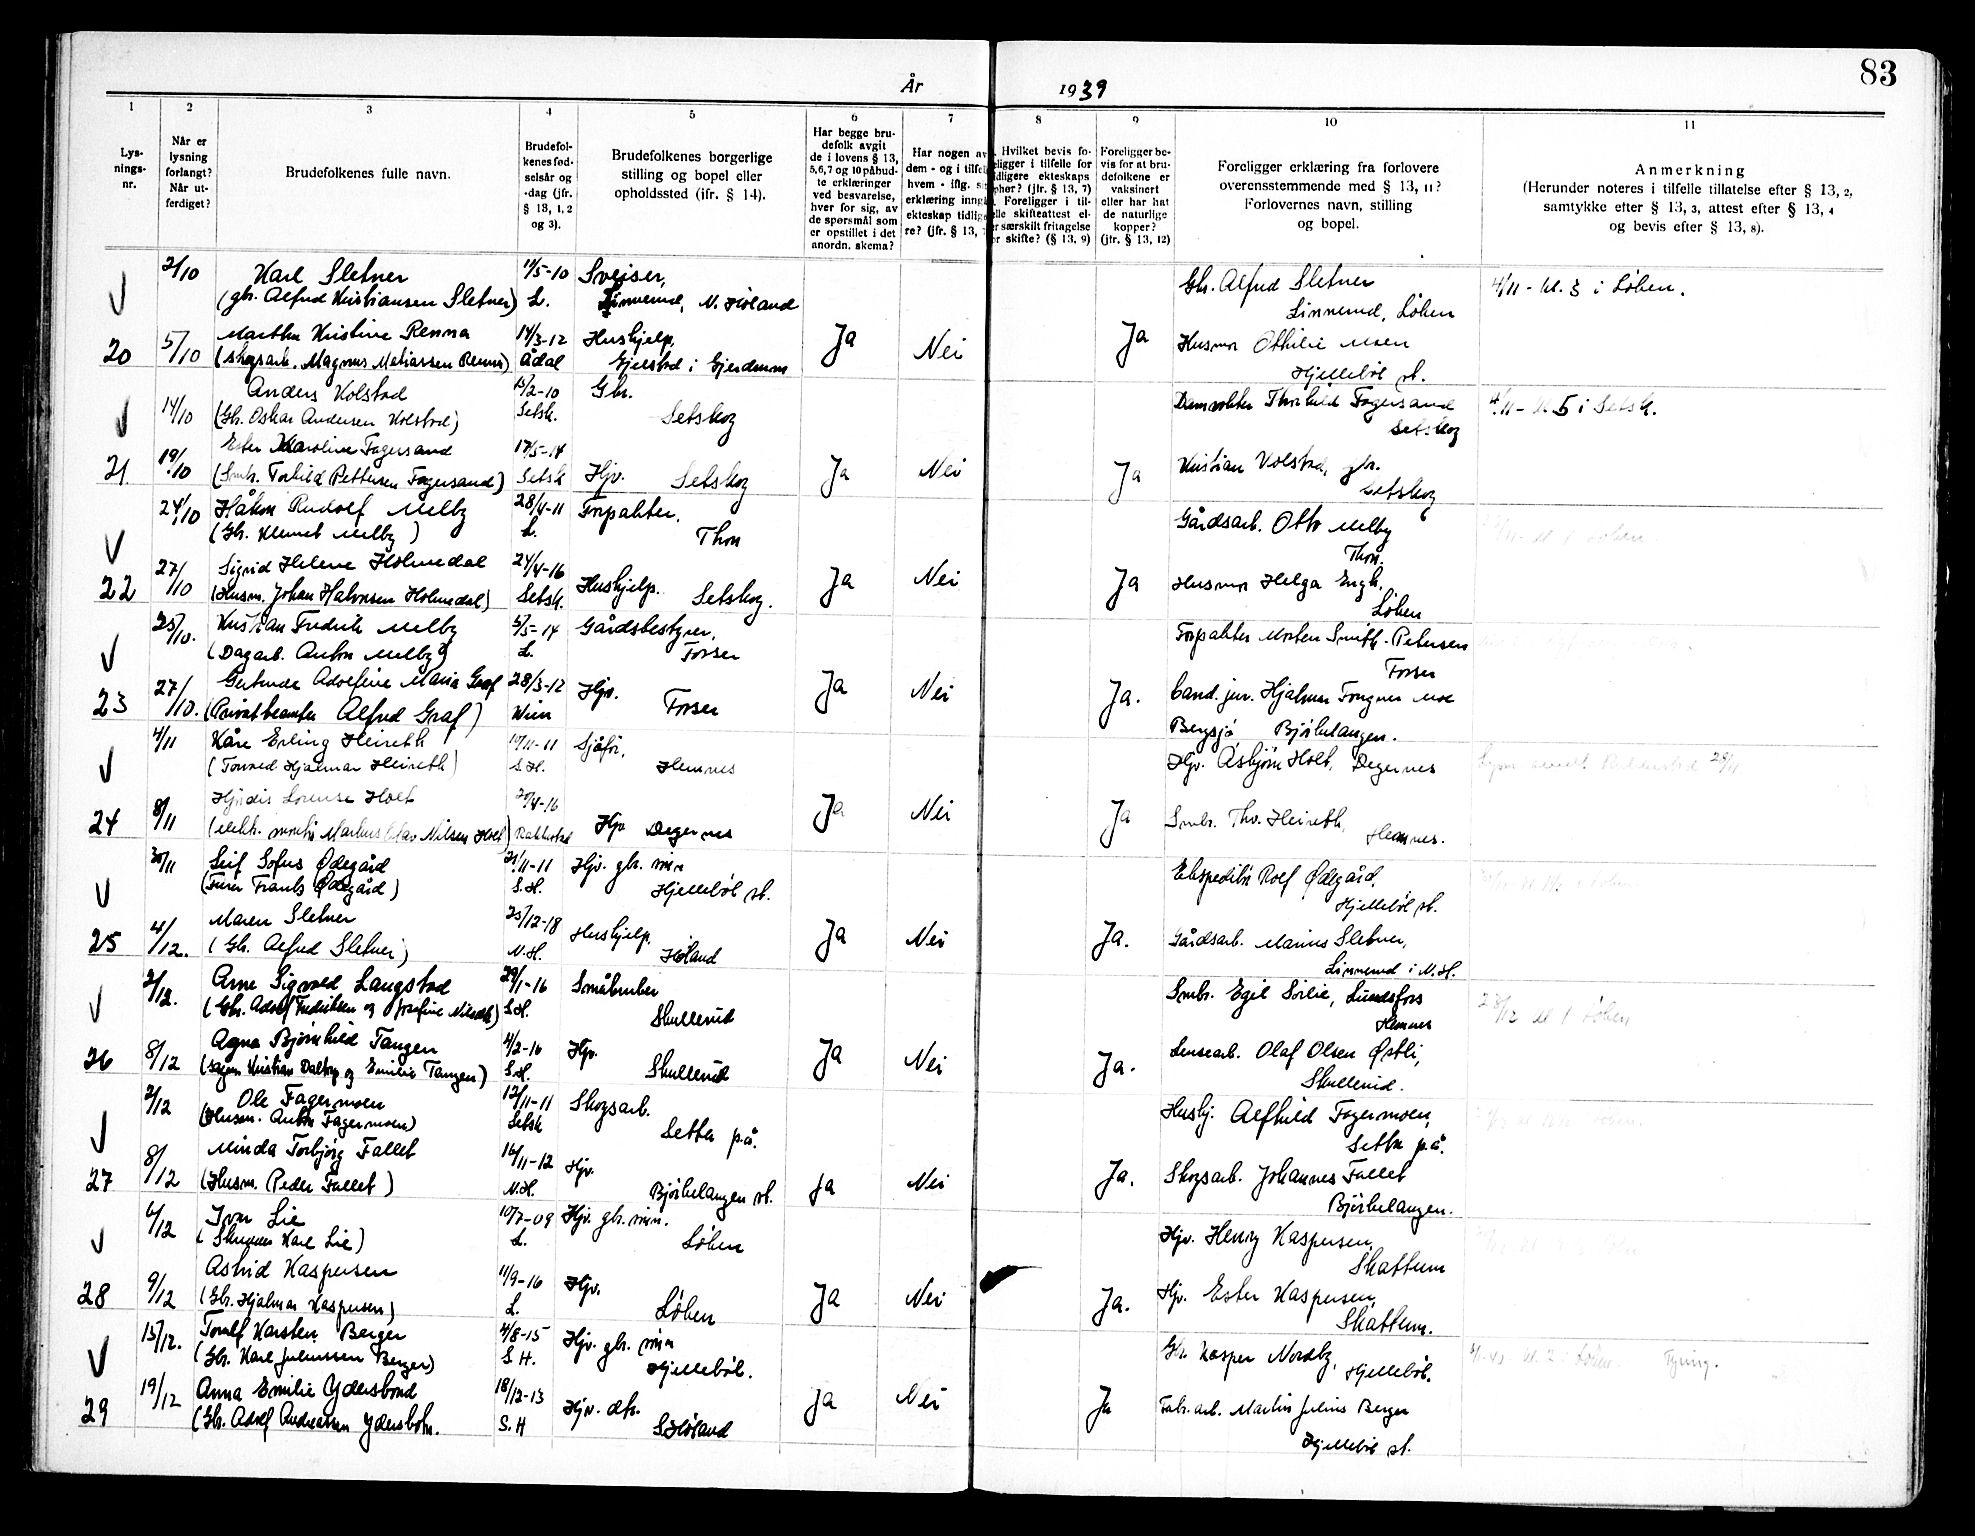 83
År 1939
1 2 3 4 5 6 7 8 9 10 11
Lysningsnr.
Når er lysning forlangt? Når utferdiget?
Brudefolkenes fulle navn.
Brudefolkenes fødselsår og -dag (jfr. § 13, 1, 2 og 3).
Brudefolkenes borgerlige stilling og bopel eller opholdssted (ifr. § 14).
Har begge brudefolk avgit de i lovens § 13, 5,6,7 og 10 påbudte erklæringer ved besvarelse, hver for sig, av de spørsmål som er opstillet i det anordn. skema?
Har nogen av dem - og i tilfelle hvem - iflg. erklæring inngått ekteskap tidligere? (jfr. § 13,
Hvilket bevis foreligger i tilfelle for tidligere ekteskaps ophør? (jfr. § 13, 7) Foreligger i tilfelle skifteattest eller særskilt fritagelse for skifte? (§ 13, 9)
Foreligger bevis for at brudefolkene er vaksinert eller har hat de naturlige kopper? (jfr. § 13, 12)
Foreligger erklæring fra forlovere overensstemmende med § 13, 11? Forlovernes navn, stilling og bopel.
Anmerkning
(Herunder noteres i tilfelle tillatelse efter § 13, 2, samtykke efter § 13, 3, attest efter § 13, 4 og bevis efter § 13, 8).
2/10 Karl Sletner 11/5-10 Sveiser, Gbr. Alfred Sletner 4/11 - kl. 3 i Løken.
(gbr. Alfred Kristiansen Sletner) L. Linnerud, N. Høland Linnerud, Løken
Marthea Kristine Renna 14/3-12 Hushjelp, Husmor Othilie Moen
20 5/10 (skogsarb. Magnus Mathiassen Renna) Ådal Gjelstad i Gjerdrum Ja Nei Ja Hjellebøl st.
Anders Kolstad 13/2-10 Gbr.
14/10 (Gbr. Oskar Andersen Kolstad) Setsk. Setskog Thorhild Fagersand 4/11 - kl. 5 i Setsk.
Setskog
Ester Karoline Fagersand 17/5-14
21. 19/10 (Smbr. Torhild Pettersen Fagersand) Setsk Hjv. Setskog Ja Nei Ja Kristian Kolstad, gbr.
Setskog
24/10 Håkon Rudolf Melby 28/4-11 Forpakter, Gårdsarb. Otto Melby
(Gbr. Klemet Melby) L. Thon Thon.
Sigrid Helene Holmedal 24/4-16
22 27/10 (Husm. Johan Halvorsen Holmedal) Setsk. Hushjelp. Setskog. Ja Nei Ja Husmor Helga Engh,
Løken
25/10. Kristian Fredrik Melby 5/5-14 Gårdsbestyrer, Forpakter Morten Smith-Petersen
(Dagarb. Anton Melby) L. Fosser Fosser
Gertrude Adolfine Maria Graf 28/3-12
23 27/10. (Privatbeamter Alfred Graf) Wien Hjv. Fosser Ja Nei Ja. Cand. jur. Hjalmar Moe
Bergsjø Bjørkelangen.
4/11 Kåre Erling Heireth 10/11-11 Sjåfør, Hjv. Asbjørn Holt, Degernes 29/11
(Torvald Hjalmar Heireth) S.H. Hemnes
Hjørdis Lovense Holt 20/4-16
24 8/11 (Markus Olav Nilsen Holt) Rakkestad Hjv Degernes Ja Nei Ja Smbr. Thv. Heireth,
Hemnes.
30/11 Leif Sofus Ødegård 21/11-11 Hjv. gbr. min Ekspeditør Rolf Ødegård,
(Furer Frants Ødegård) S.H. Hjellebøl st. Hjellebøl st.
Maren Sletner 25/12-18
25 4/12. (Gbr. Alfred Sletner) N.H. Hushjelp, Høland Ja Nei Ja. Gårdsarb. Marius Sletner,
Linnerud i N.H.
2/12. Arne Sigvald Langstad 29/1-16 Småbruker Smbr. Egil Sørlie, Lundsfoss 28/12 kl 1 Løken
(Gbr. Adolf Fredriksen og Josefine Nilsdtr.) S.H. Skullerud Hemnes
Agna Bjørnhild Tangen 4/2-16
26 8/12 (Kristian Daltorp og Emilie Tangen) S.H. Hjv. Skullerud Ja Nei Ja. Lensearb. Olaf Olsen Østli,
Skullerud.
2/12 Ole Fagermoen 12/11-11 Skogsarb. Hushj. Alfhild Fagermoen,
(Husm. Anton Fagermoen) Setsk Setten på. Setten på.
Minda Torbjørg Fallet 16/11-12
27 8/12 (Husm. Peder Fallet) N.H. Hjv. Bjørkelangen st. Ja Nei Ja. Skogsarb. Johannes Fallet
Bjørkelangen.
6/12 Ivar Lie 10/7-09 Hjv. gbr. min. Hjv. Henry Kaspersen,
(Karl Lie) L. Løken Skattum
Astrid Kaspersen 11/9-16
28 9/12 (Gbr. Hjalmar Kaspersen) L. Hjv. Løken Ja Nei Ja. Hjv. Ester Kaspersen,
Skattum.
15/12. Torolf Karsten Berger 4/8-15 Hjv. gbr. min Gbr. Kasper Nordby, Løken.
(Gbr. Karl Juliussen Berger) S.H. Hjellebøl. Hjellebøl.
Anna Emilie Ydersbond 18/12-13
29 19/12 (Gbr. Adolf Andreassen Ydersbotn. S.H Hjv. dtr. S Høland Ja Nei Ja Fabr.arb. Martin Julius Berger
Hjellebøl st.